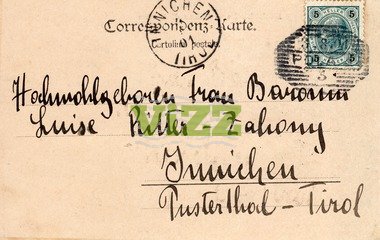 Correspondenz-Karte.
Cartolina postale
INNICHEN
TIROL
5 5
Hochwohlgeboren Frau Baronin
Luise Ritter-Zahony
VIZZ
Innichen
Pusterthal-Tirol